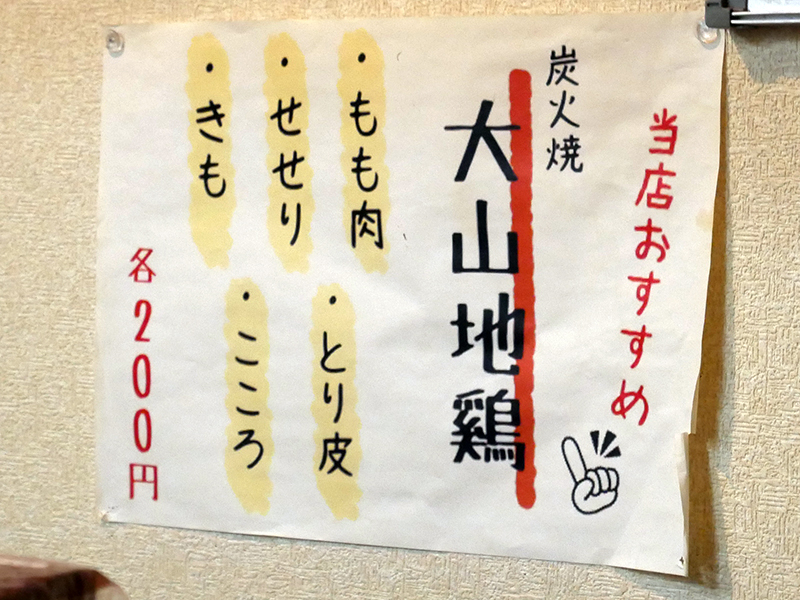 当店おすすめ
炭火焼
大山地鶏
・もも肉
・せせり
・きも
・とり皮
・こころ
各200円